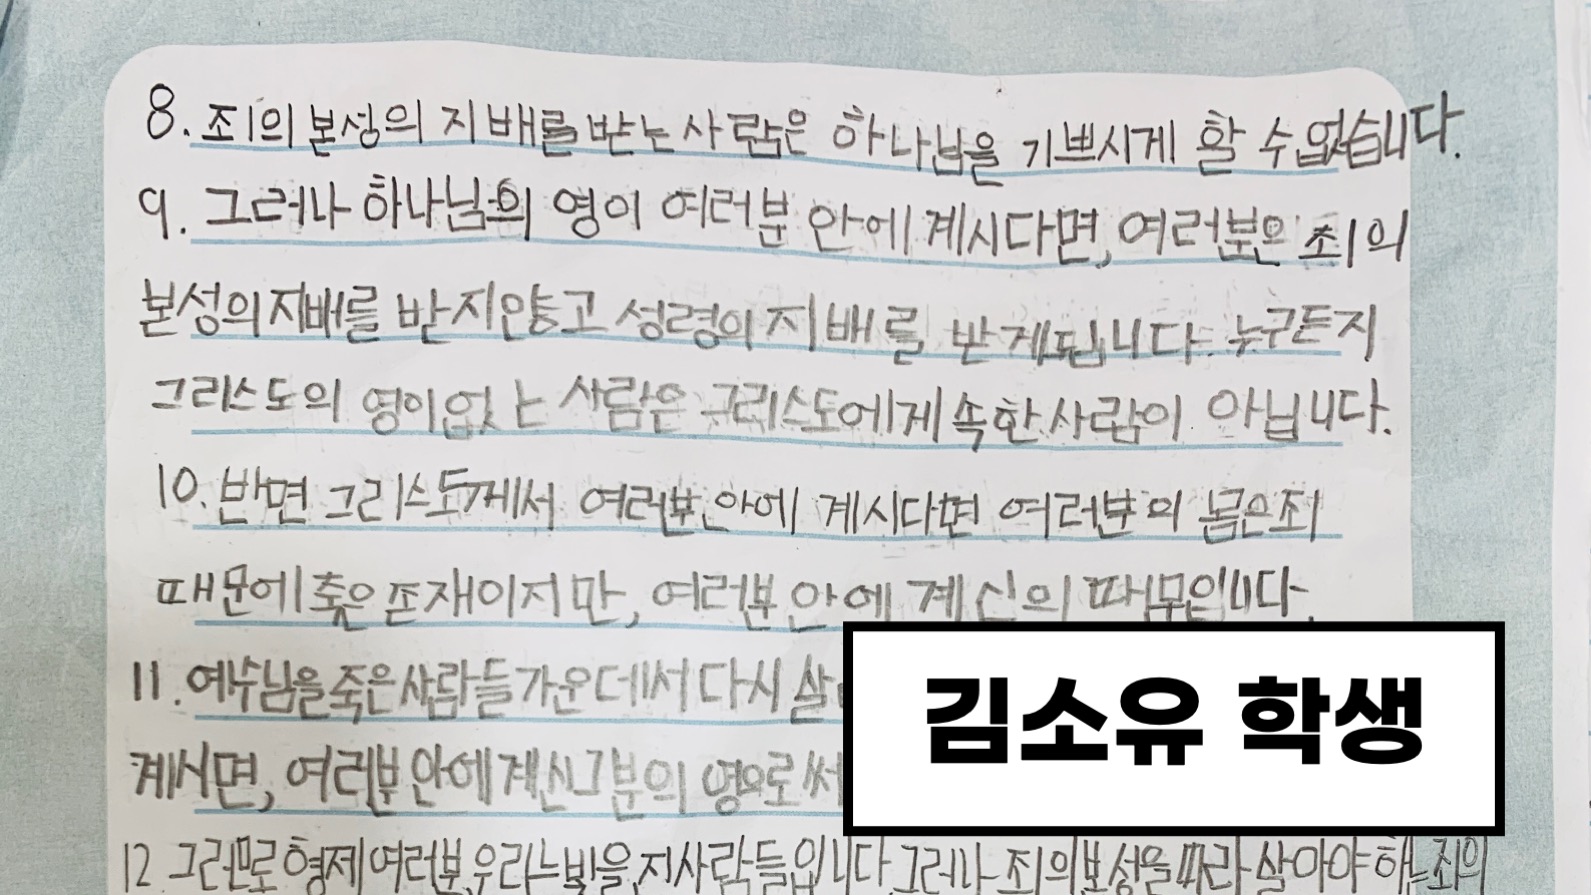 8. 죄의 본성의 지배를 받는 사람은 하나님을 기쁘시게 할 수 없습니다.
9. 그러나 하나님의 영이 여러분 안에 계시다면, 여러분은 죄의
본성의 지배를 받지 않고 성령의 지배를 받게 됩니다. 누구든지
그리스도의 영이 없는 사람은 그리스도에게 속한 사람이 아닙니다.
10. 반면 그리스도께서 여러분 안에 계시다면 여러분의 몸은 죄
때문에 죽은 존재이지만, 여러분 안에 계신 의 때문입니다.
11. 예수님을 죽은 사람들 가운데서 다시 살
계시면, 여러분 안에 계신 그분의 영으로써
김소유 학생
12. 그러므로 형제 여러분, 우리는 빚을 지 사람들입니다. 그러나 죄의 본성을 따라 살아야 하는 죄의